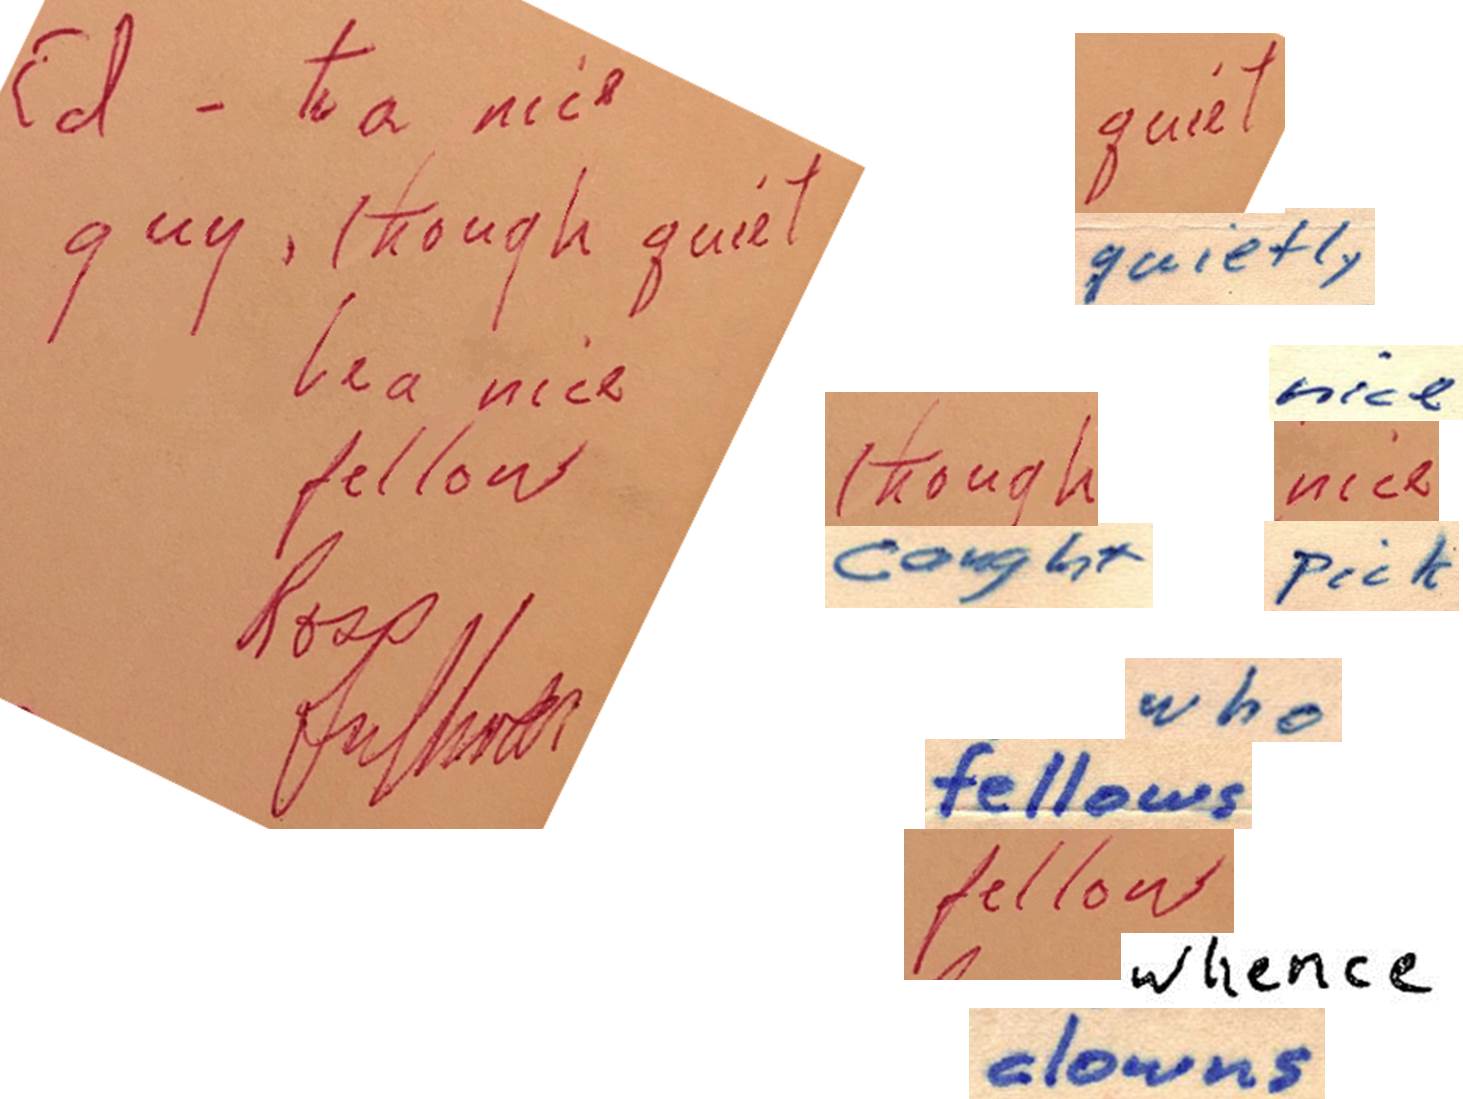 Ed - to a nice
guy, though quiet
be a nice
fellow
Ross
quiet
quietly
nice
though
nice
caught
pick
who
fellows
fellow
whence
clowns